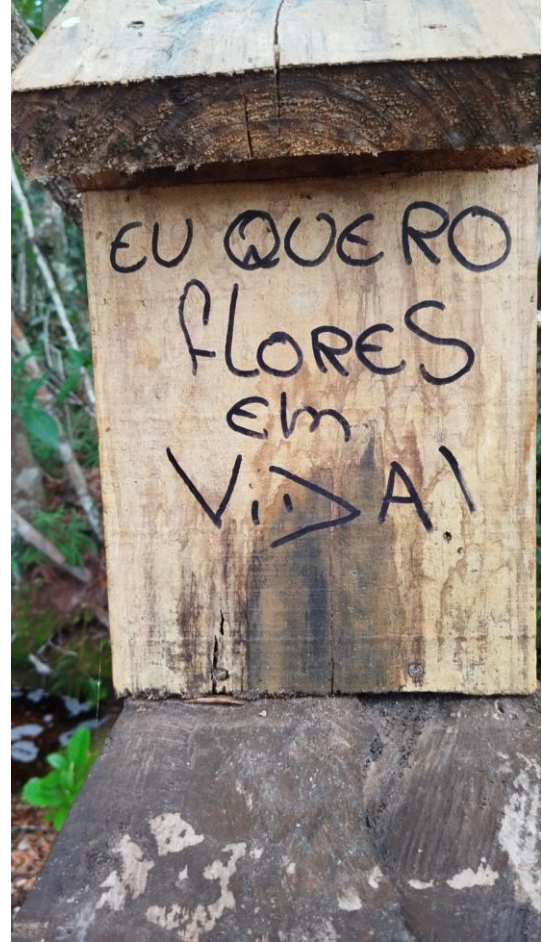 EU QUERO
fLORES
Em
ViDA!